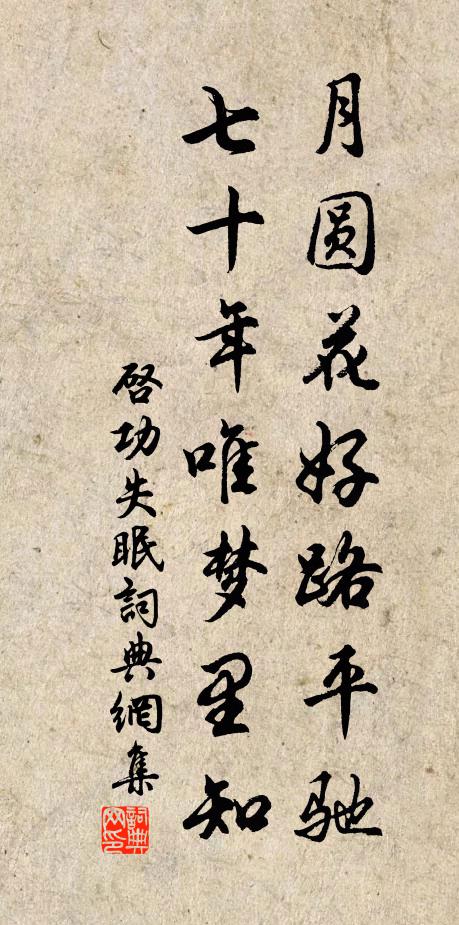 月圆花好路平驰
七十年唯梦里知
啓功失眠詞典網集
詞典网印